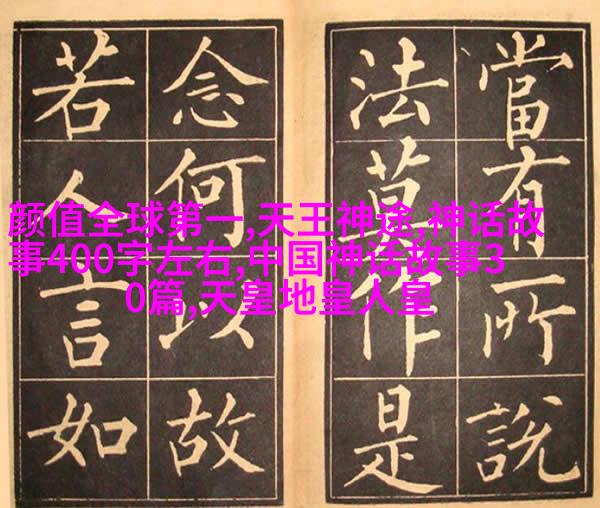 當有所說
法莫作是
念何以故
若人言如
颜值全球第一,天王神途,神话故
事400字左右,中国神话故事3
0篇,天皇地皇人皇